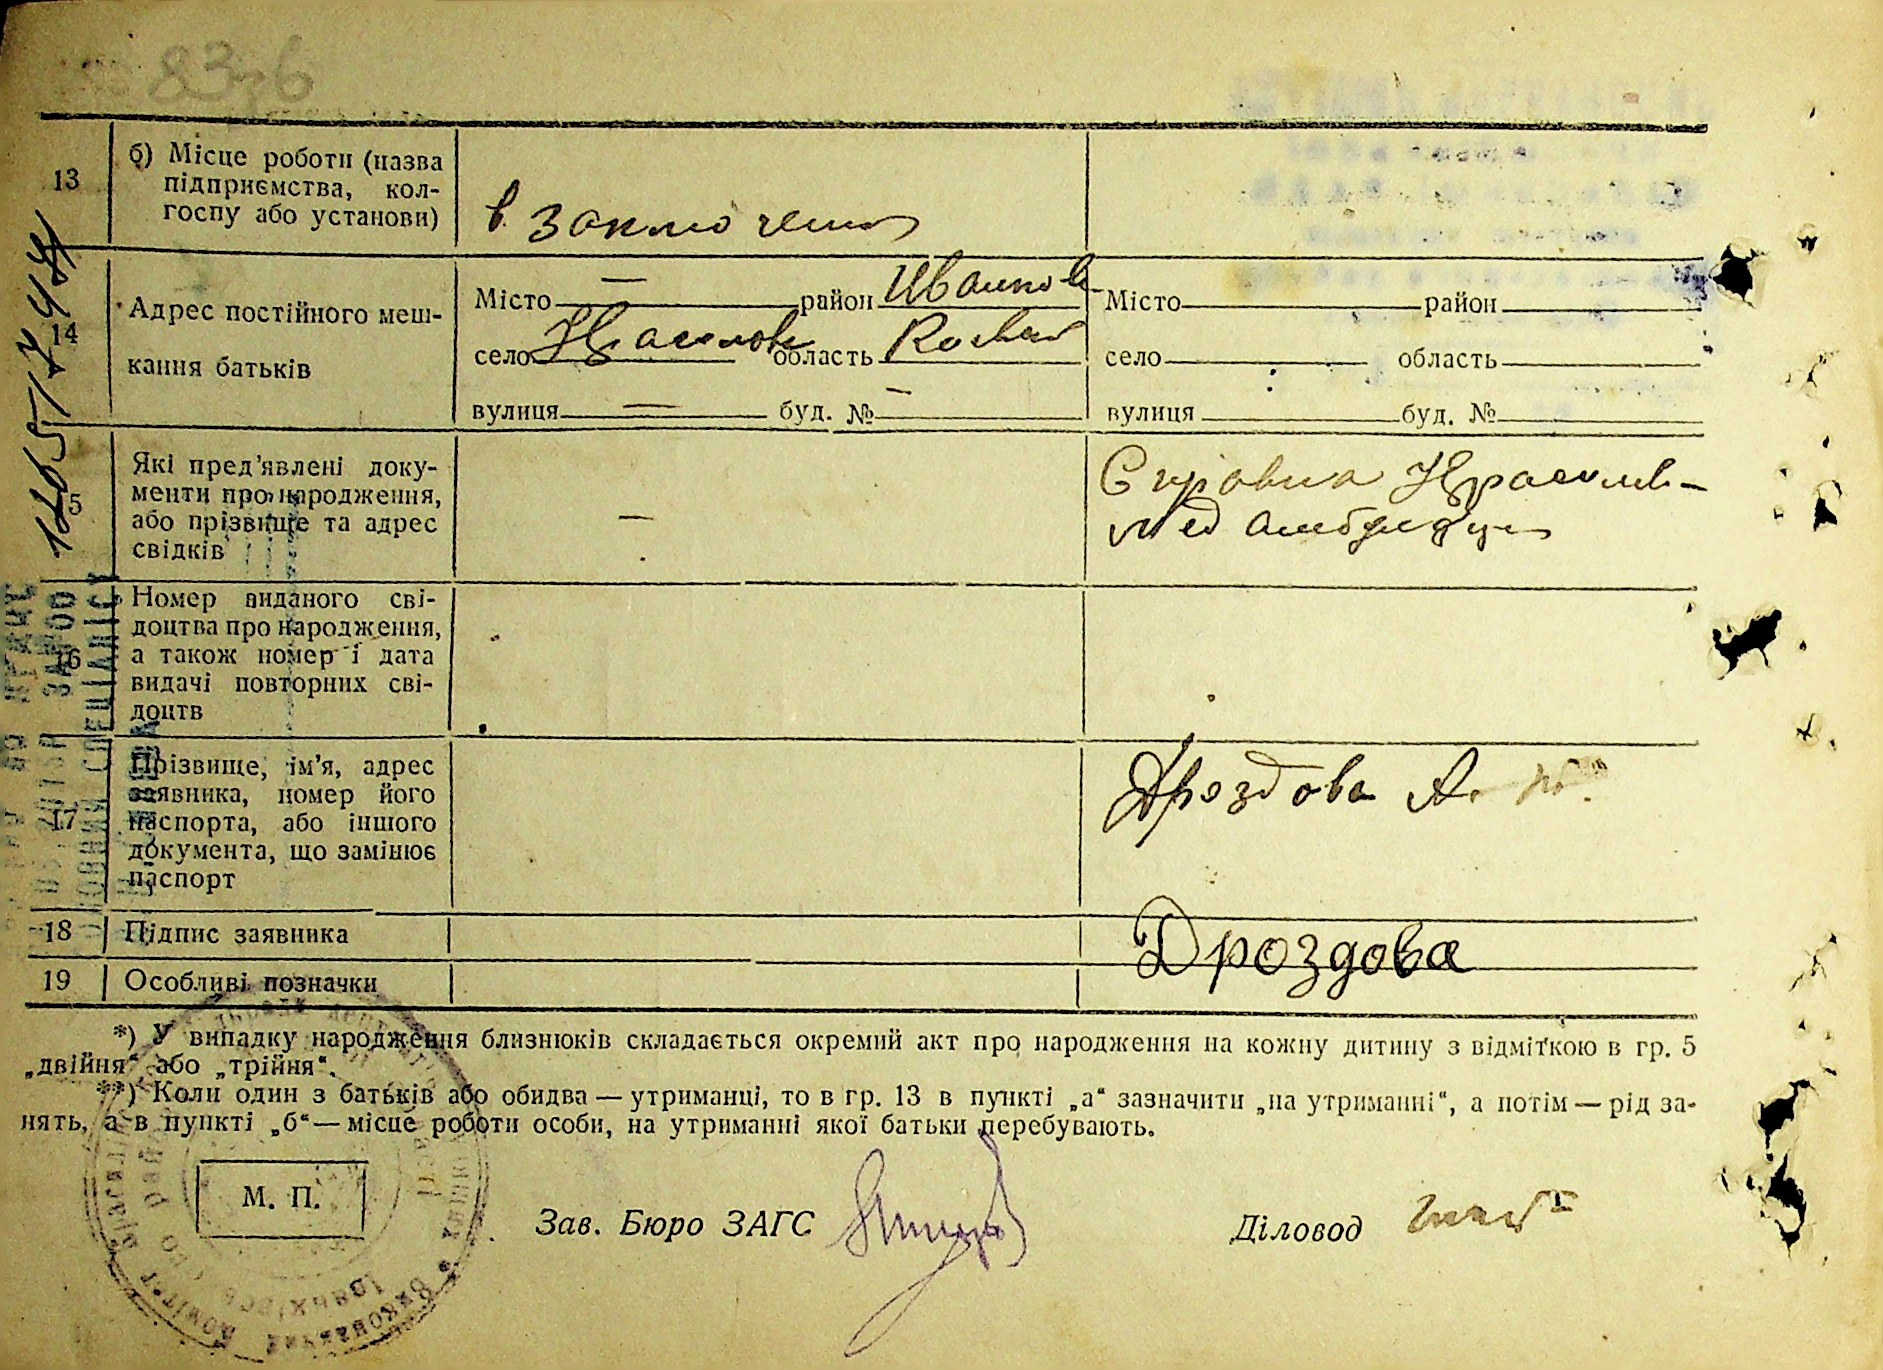 13 б) Місце роботи (назва
підприємства, кол-
госпу або установи)
в заключении
14 Адрес постійного меш-
кання батьків
Місто — район Иванков
село область
вулиця — буд. № —
Місто район
село область
вулиця буд. №
5 Які пред’явлені доку-
менти про народження,
або прізвище та адрес
свідків
—
Справка
Мед амбулатории
16 Номер виданого сві-
доцтва про народження,
а також номер і дата
видачі повторних сві-
доцтв
17 Прізвище, ім’я, адрес
заявника, номер його
паспорта, або іншого
документа, що замінює
паспорт
Дроздова А.
18 Підпис заявника
Дроздова
19 Особливі позначки
*) У випадку народження близнюків складається окремий акт про народження на кожну дитину з відміткою в гр. 5
„двійня“ або „трійня“.
**) Коли один з батьків або обидва — утриманці, то в гр. 13 в пункті „а“ зазначити „на утриманні“, а потім — рід за-
нять, а в пункті „б“ — місце роботи особи, на утриманні якої батьки перебувають.
М. П.
Зав. Бюро ЗАГС
Діловод